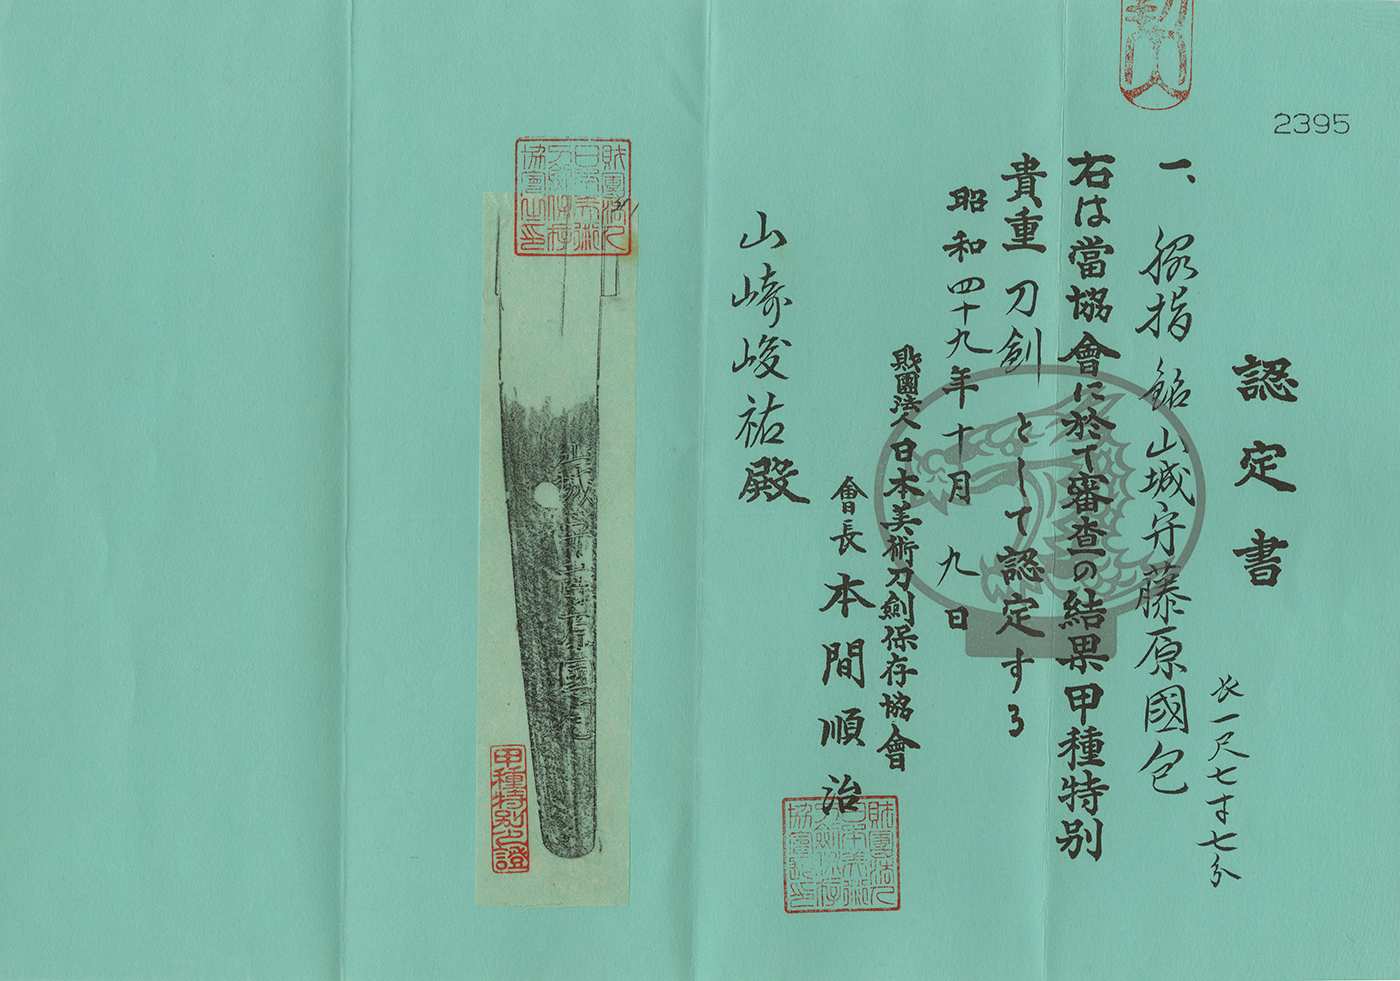 2395
認定書
一、脇指 銘山城守藤原國包
長一尺七寸七分
右は當協會に於て審査の結果甲種特別
貴重刀劍として認定する
昭和四十九年十月九日
財團法人日本美術刀劍保存協會
會長 本間順治
財團法人
日本美術
刀劍保存
協會長印
山崎峻祐殿
財團法人
日本美術
刀劍保存
協會之印
山城守藤原國包
甲種特別之證